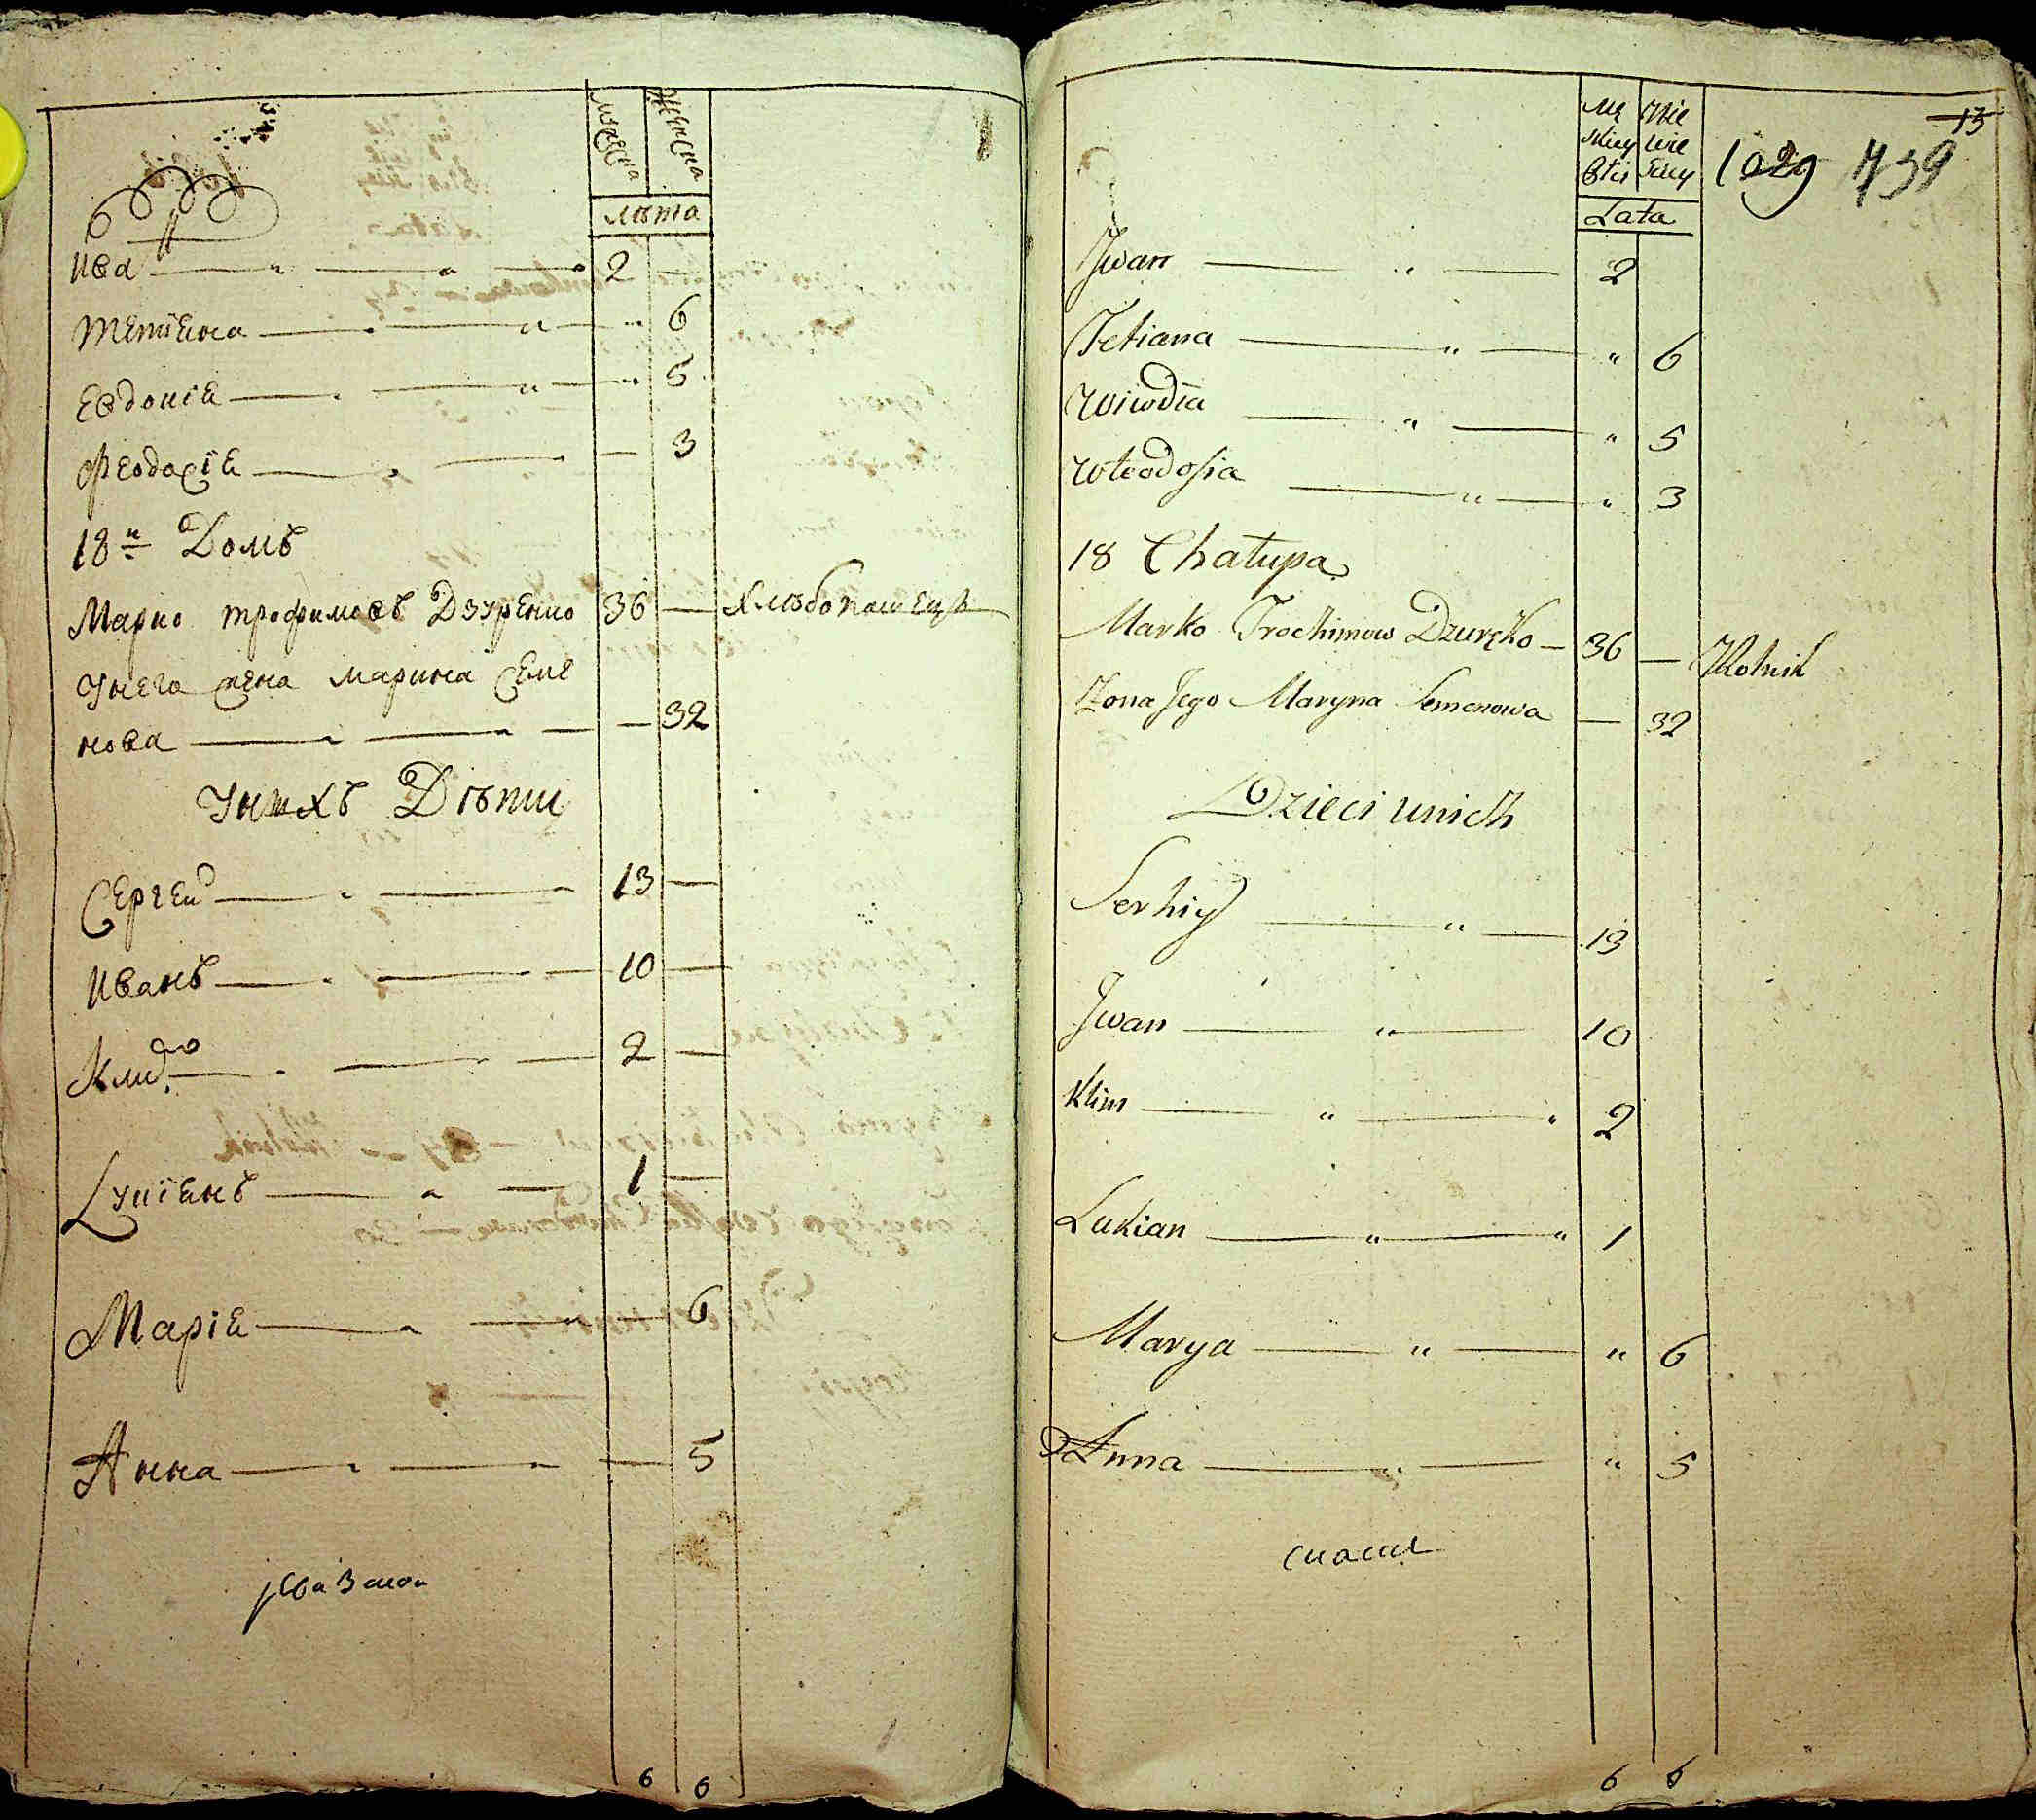 мужеска женска
лѣта
Ива 2 —
Тетіѧна 6
Евдокіѧ 5
Феодосіѧ — 3
18й Домъ
Марко трофимовъ Дзуренко 36 — хлѣбопашецъ
Унего жена марина Семе
нова — 32
Унихъ Дѣти
Сергей 13 —
Иванъ 10 —
Клим 2 —
Лукіѧнъ 1 —
Маріѧ — 6
Анна — 5
6 6
13
1029 739
Lata
Jwan 2
Tetiana " 6
Wiwdia " 5
Wteodosia " 3
18 Chałupa
Marko Trochimow Dzuręko 36 — Rolnik
Żona Jego Maryna Semenowa — 32
Dzieci unich
Serhiy 13
Jwan 10
Klim 2
Lukian 1
Marya " 6
Anna " 5
6 6